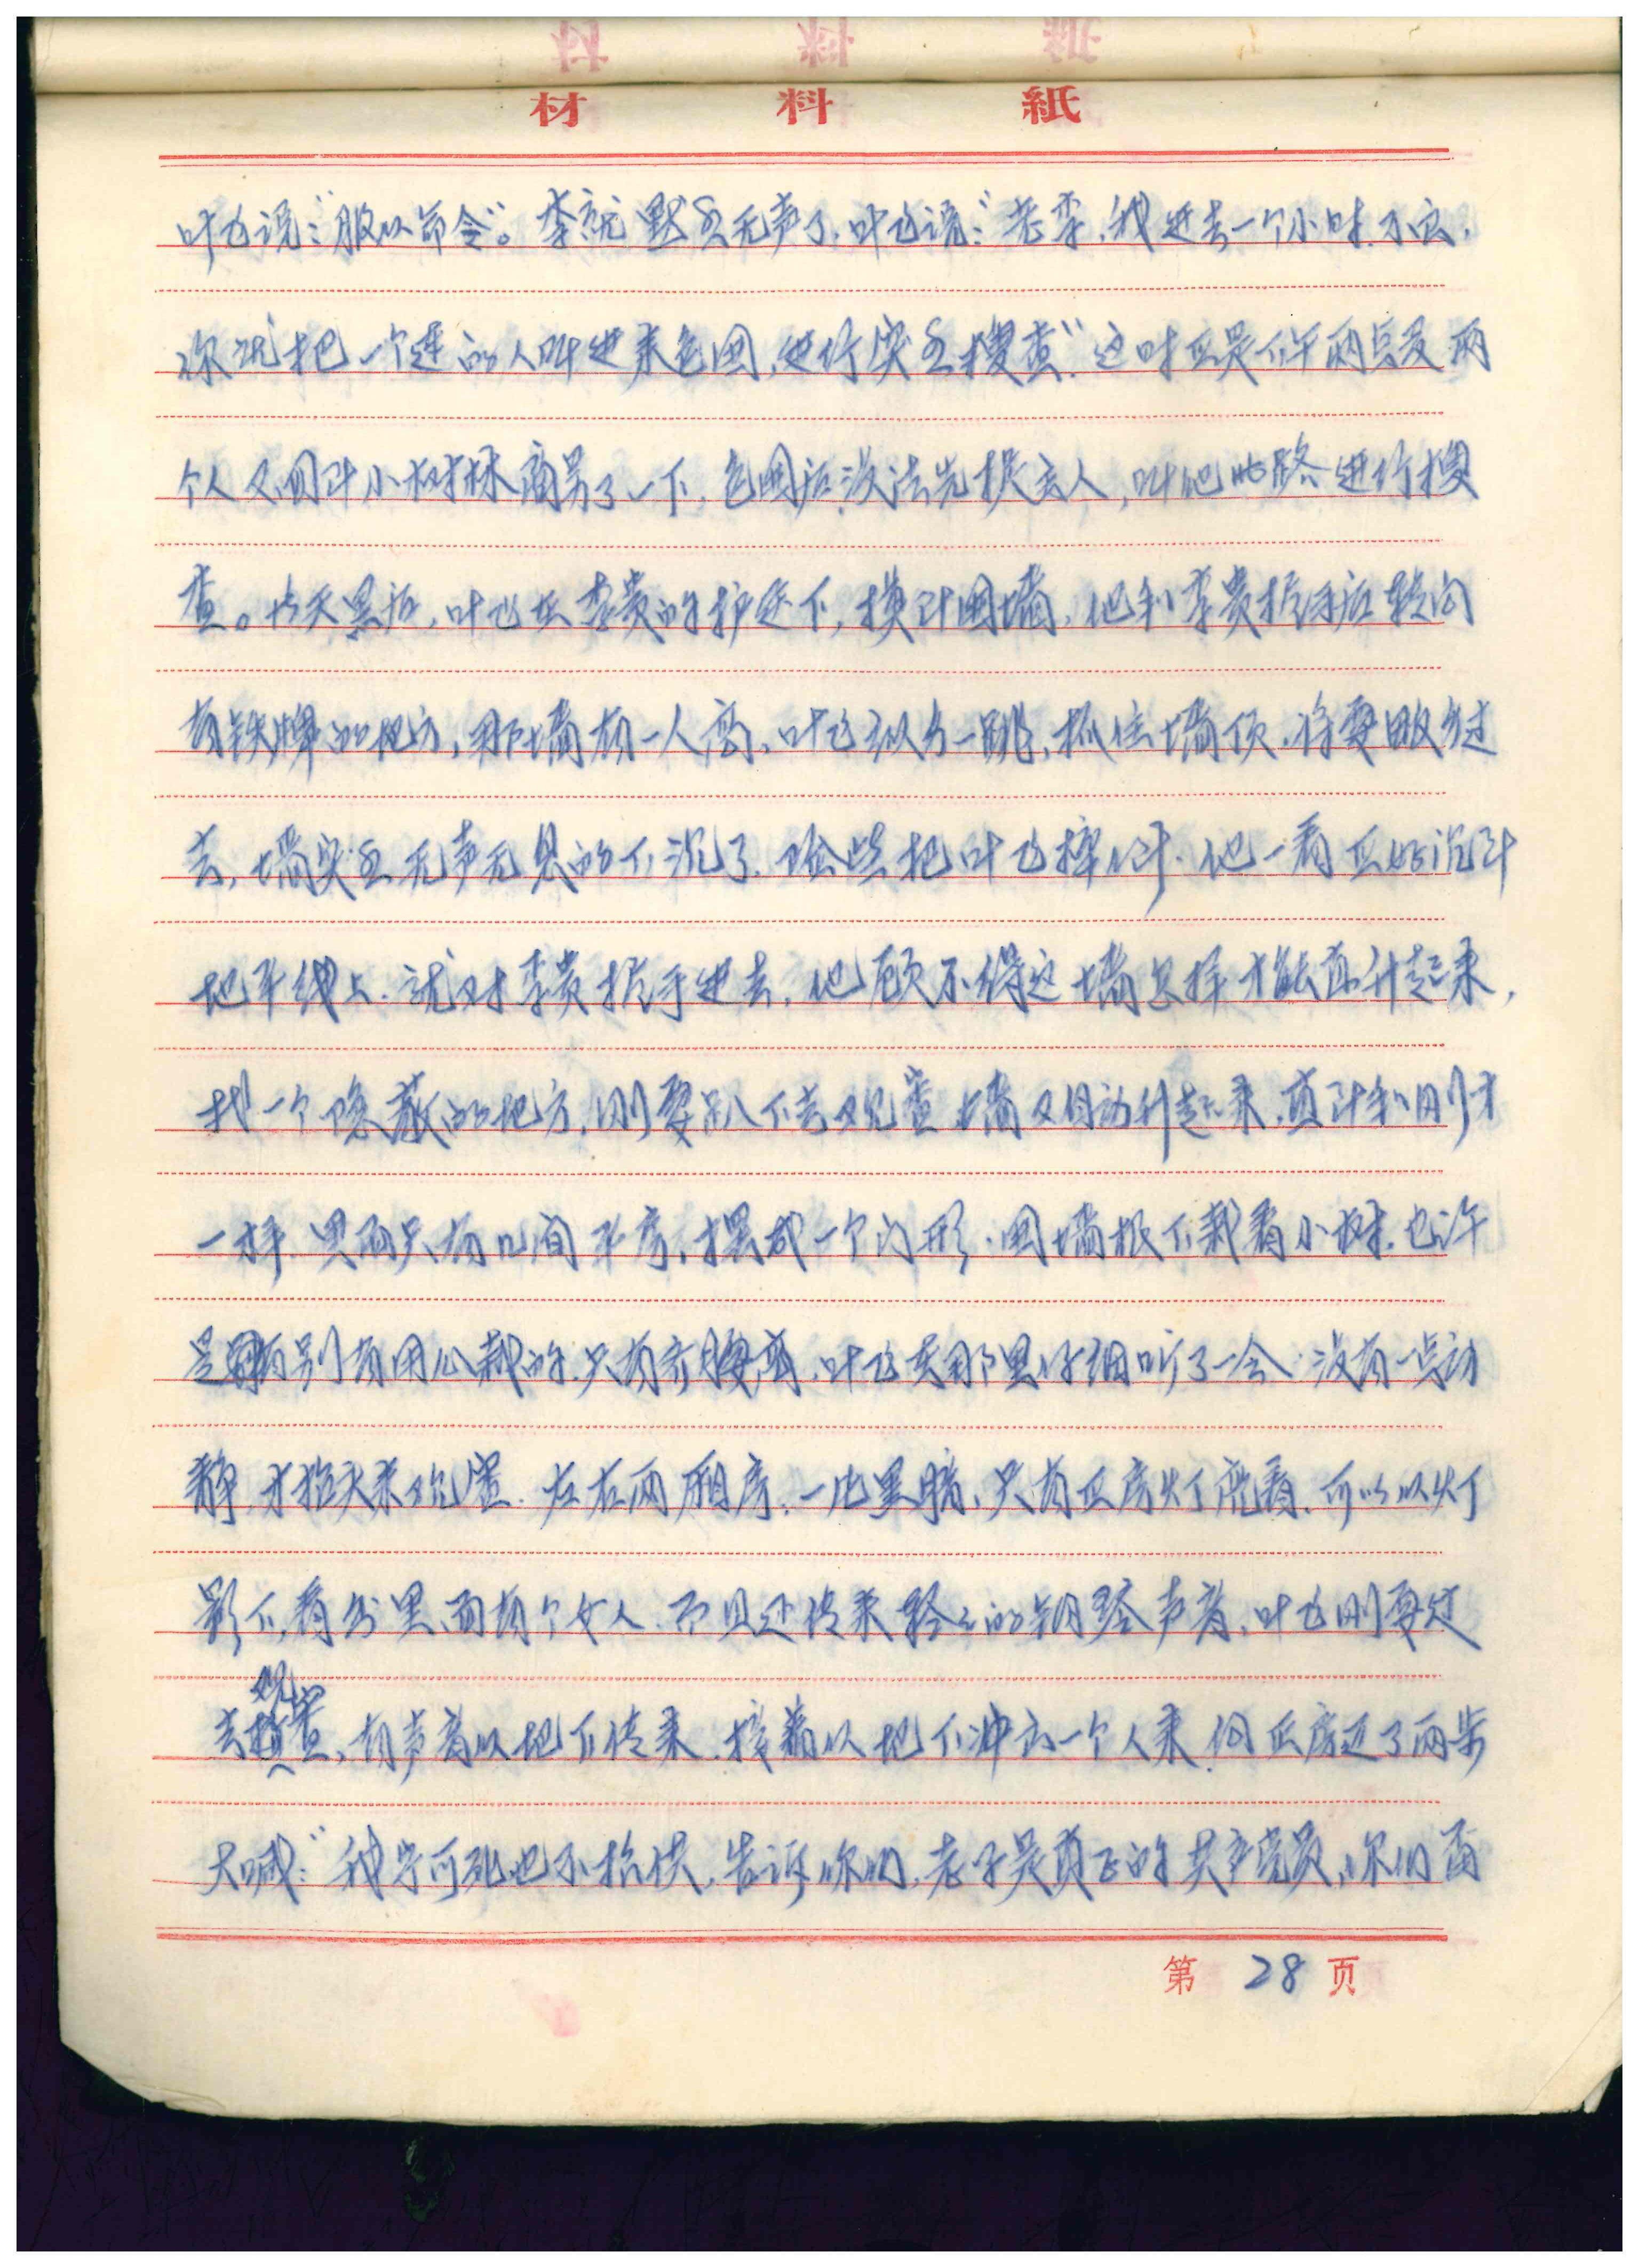 材料紙
叶飞说：“服从命令”。李就默然无声了。叶飞说：“老李，我进去一个小时不出，
你就把一个连的人叫进来包围，进行突然搜查”这时正是下午两点，两
个人又回到小树林商另了一下，包围后没法先撤去人，叫他出路进行搜
查。当天黑后，叶飞在李贵的护送下，摸到围墙，他和李贵招手后转向
有铁牌的地方，那墙有一人高，叶飞纵身一跳，抓住墙顶，将要翻过
去，墙突然无声无息的下沉了，险些把叶飞摔倒，他一看正好沉到
地平线上，就对李贵招手进去，他顾不得这墙怎样才能再升起来，
找一个隐蔽的地方，刚要趴下去观查墙又自动升起来，直到和刚才
一样，里面只有几间平房，摆成一个门形，围墙根下栽着小树，也许
是有别有用心栽的，只有齐腰高，叶飞在那里仔细听了一会，没有一点动
静，才抬头来观查，左右两厢房，一片黑暗，只有正房灯亮着，可以从灯
影下看出里面有个女人，而且还传来轻轻的钢琴声音，叶飞刚要过
去观查，有声音从地下传来，接着从地下冲出一个人来，向正房迈了两步
大喊：“我宁可死也不招供，告诉你们，老子是真正的共产党员，你们要
第 28 页